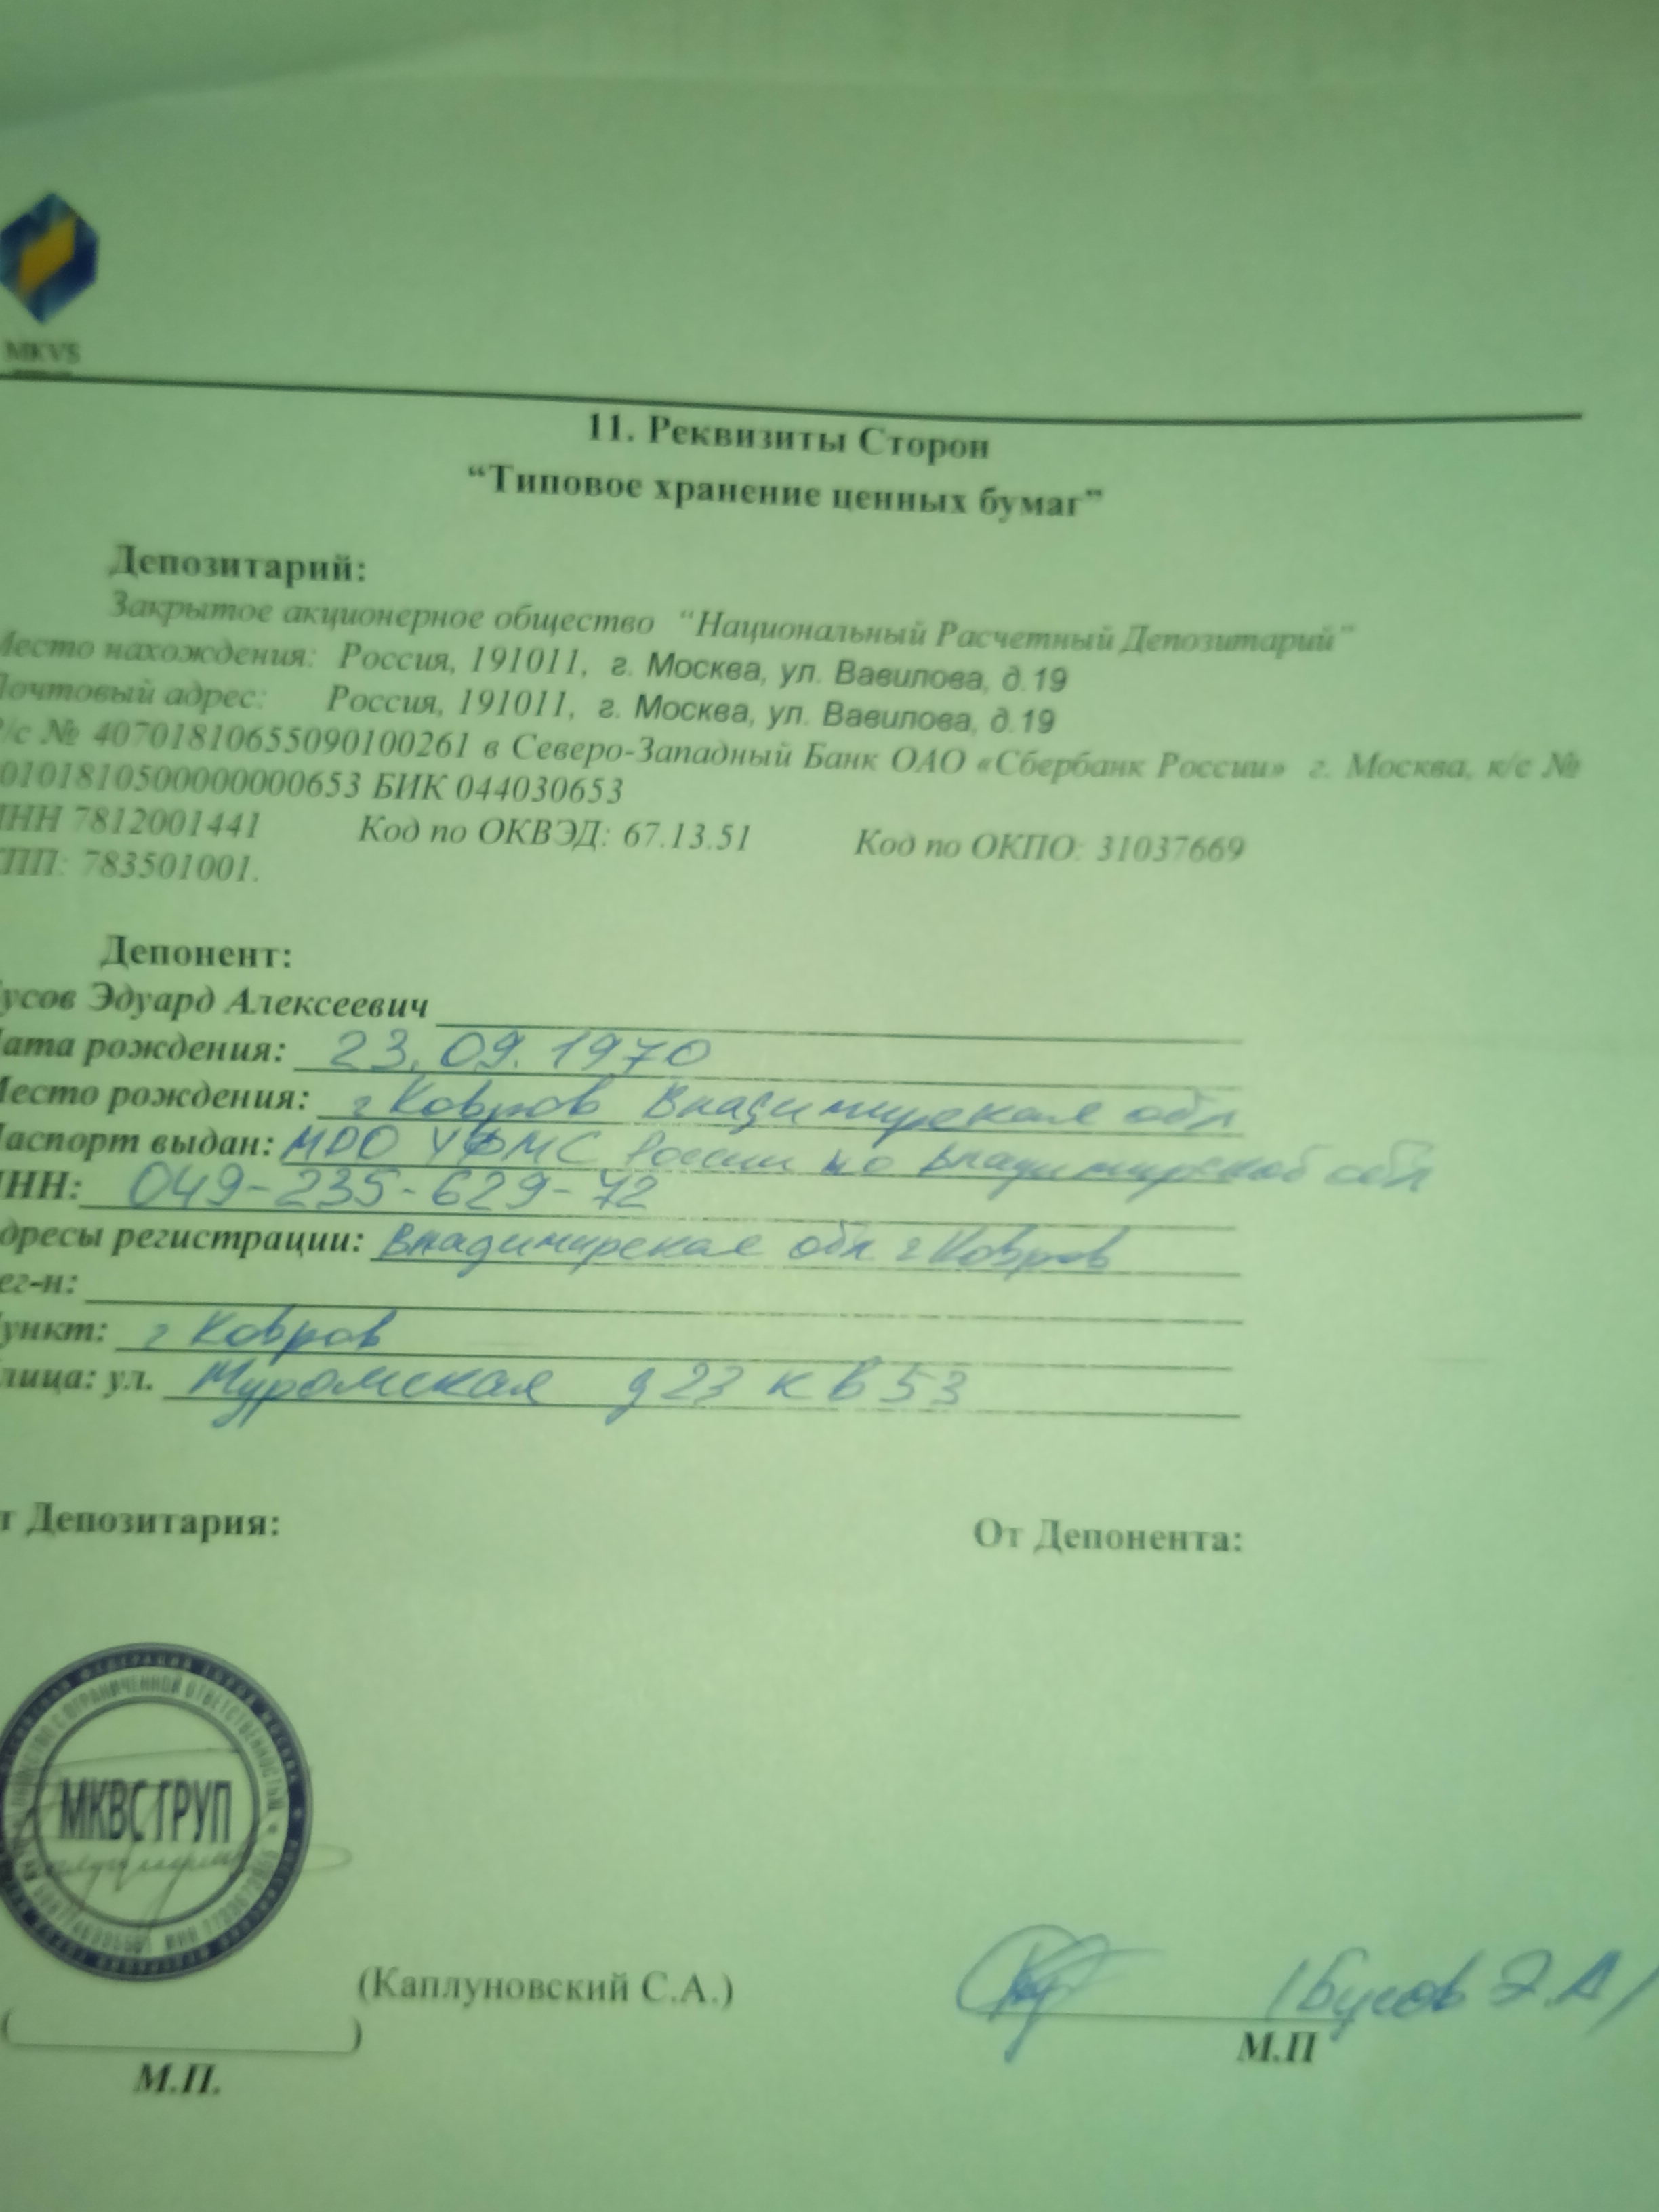 MKVS
11. Реквизиты Сторон
“Типовое хранение ценных бумаг”
Депозитарий:
Закрытое акционерное общество “Национальный Расчетный Депозитарий”
Место нахождения: Россия, 191011, г. Москва, ул. Вавилова, д.19
Почтовый адрес: Россия, 191011, г. Москва, ул. Вавилова, д.19
/с № 40701810655090100261 в Северо-Западный Банк ОАО «Сбербанк России» г. Москва, к/с №
0101810500000000653 БИК 044030653
ИНН 7812001441 Код по ОКВЭД: 67.13.51 Код по ОКПО: 31037669
КПП: 783501001.
Депонент:
усов Эдуард Алексеевич
ата рождения: 23.09.1970
Место рождения: г Ковров Владимирская обл
Паспорт выдан: МРО УФМС России по Владимирской обл
ИНН: 049-235-629-72
дресы регистрации: Владимирская обл г Ковров
ег-н:
ункт: г Ковров
лица: ул. Муромская д 23 кв 53
т Депозитария: От Депонента:
ОБЩЕСТВО С ОГРАНИЧЕННОЙ ОТВЕТСТВЕННОСТЬЮ
МКВС ГРУП
(Каплуновский С.А.) /Бусов Э.А/
М.П. М.П